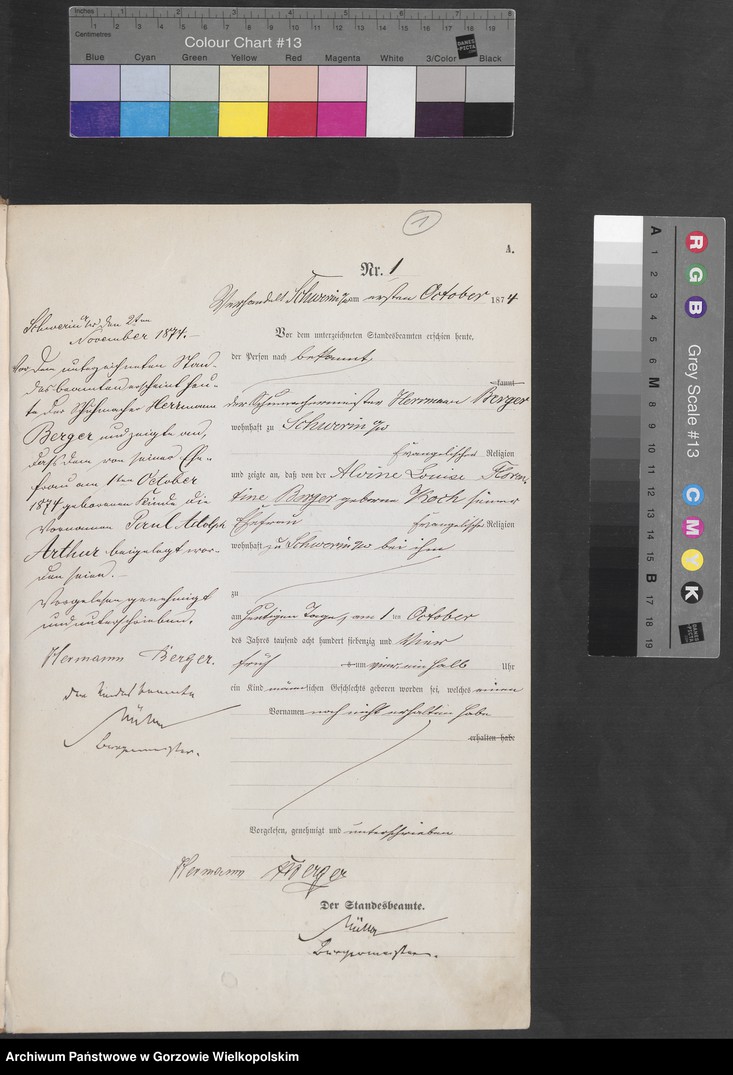 Inches 1 2 3 4 5 6 7 8
Centimetres 1 2 3 4 5 6 7 8 9 10 11 12 13 14 15 16 17 18 19
Colour Chart #13
DANES PICTA
Blue Cyan Green Yellow Red Magenta White 3/Color Black
1
A.
Nr. 1
Verhandelt Schwerin a/W am ersten October 1874
Vor dem unterzeichneten Standesbeamten erschien heute,
der Person nach bekannt,
kannt
der Schuhmachermeister Herrmann Berger
wohnhaft zu Schwerin a/W
Evangelischen Religion
und zeigte an, daß von der Alvine Louise
Berger geborne Koch seiner
Ehefrau Evangelische Religion
wohnhaft zu Schwerin a/W bei ihm
zu
am heutigen Tage, am 1 ten October
des Jahres tausend acht hundert siebenzig und Vier
früh um vier ein halb Uhr
ein Kind männlichen Geschlechts geboren worden sei, welches einen
Vornamen noch nicht erhalten habe
erhalten habe
Vorgelesen, genehmigt und unterschrieben
Hermann Berger
Der Standesbeamte.
Müller
Bürgermeister.
Schwerin a/W den 2ten
November 1874.-
Vor dem unterzeichneten Stan-
desbeamten erscheint heu-
te der Schuhmacher Herrmann
Berger und zeigte an,
daß dem von seiner Ehe-
frau am 1ten October
1874 geborenen Kinde die
Vornamen Paul Adolph
Arthur beigelegt wor-
den seien.-
Vorgelesen genehmigt
und unterschrieben.
Hermann Berger.
Der Standesbeamte
Müller
Bürgermeister.
R G B
Grey Scale #13
C M Y K
A 1 2 3 4 5 6 M 8 9 10 11 12 13 14 15 B 17 18 19
DANES PICTA
Archiwum Państwowe w Gorzowie Wielkopolskim